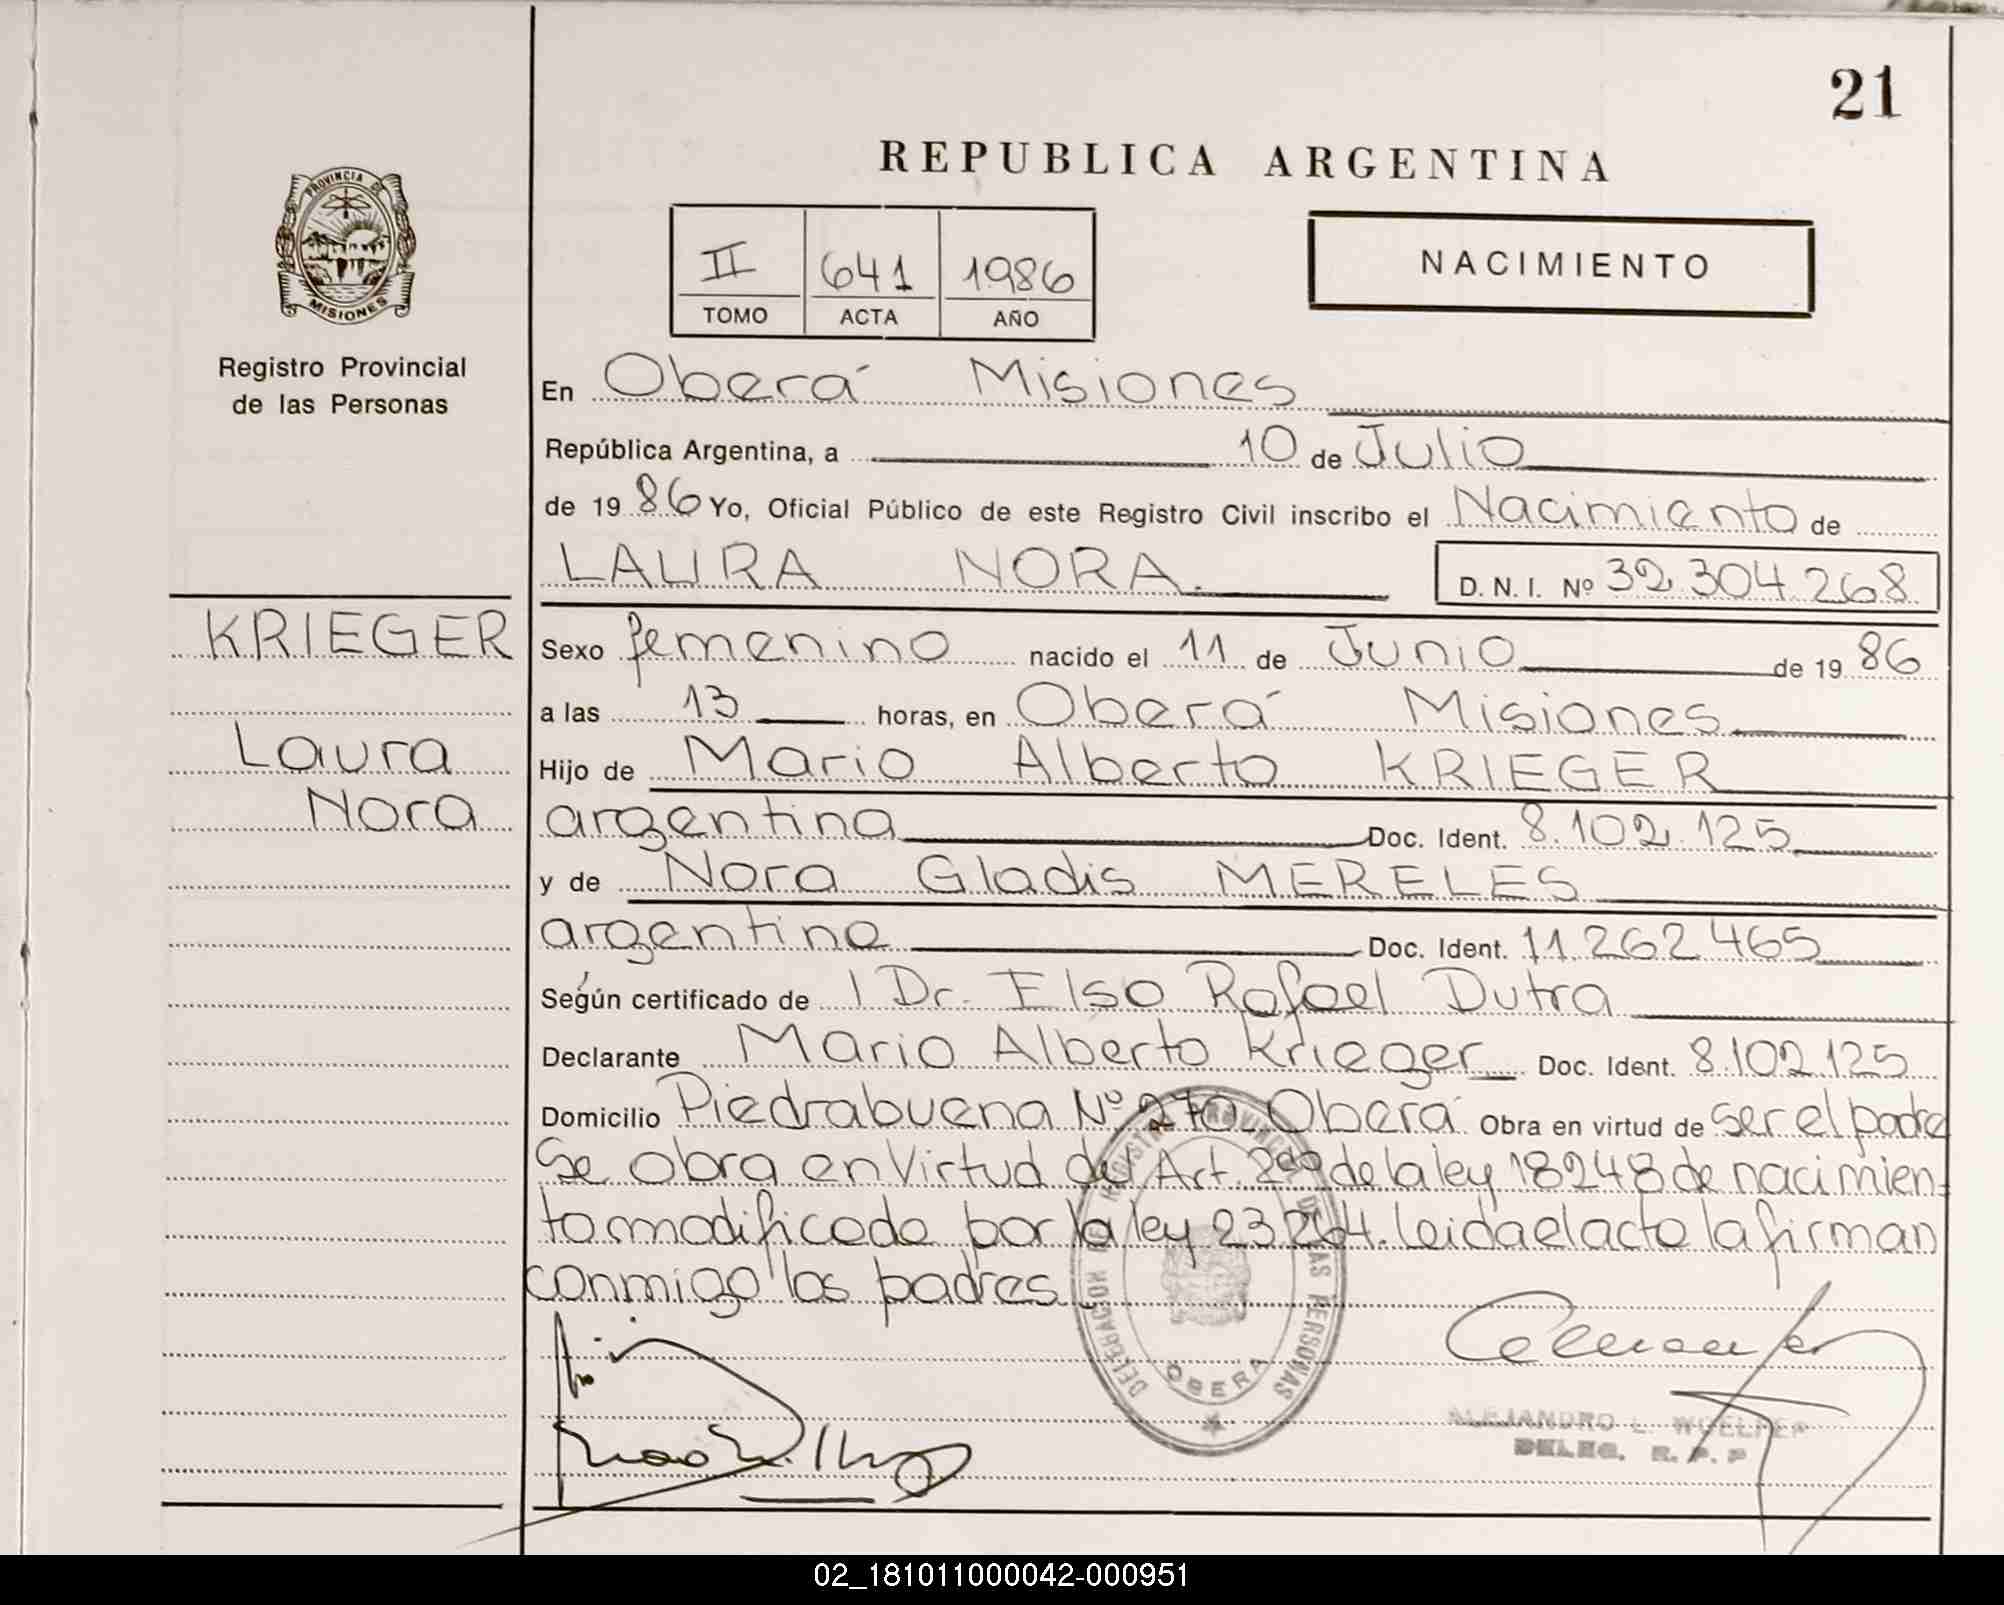 21
REPUBLICA ARGENTINA
PROVINCIA DE
MISIONES
Registro Provincial
de las Personas
II 641 1986
TOMO ACTA AÑO
NACIMIENTO
En Oberá Misiones
República Argentina, a 10 de Julio
de 19 86 Yo, Oficial Público de este Registro Civil inscribo el Nacimiento de
LAURA NORA.
D. N. I. Nº 32.304.268
KRIEGER
Laura
Nora
Sexo femenino nacido el 11 de Junio de 19 86
a las 13 horas, en Oberá Misiones
Hijo de Mario Alberto KRIEGER
argentino Doc. Ident. 8.102.125
y de Nora Gladis MERELES
argentina Doc. Ident. 11.262.465
Según certificado de l Dr. Elso Rafael Dutra
Declarante Mario Alberto Krieger Doc. Ident. 8.102.125
Domicilio Piedrabuena Nº 270 Oberá Obra en virtud de ser el padre
Se obra en Virtud del Art. 2do de la ley 18248 de nacimien-
to modificado por la ley 23264. Leida el acta la firman
conmigo los padres
DELEGACION DEL REGISTRO PROVINCIAL DE LAS PERSONAS
OBERA
ALEJANDRO L. WOELFER
DELEG. R. P. P
02_181011000042-000951